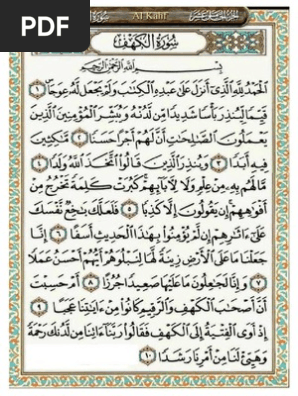 PDF
سورة الكهف
Al Kahf
سُورَةُ الْكَهْفِ
بِسْمِ اللَّهِ الرَّحْمَٰنِ الرَّحِيمِ
الْحَمْدُ لِلَّهِ الَّذِي أَنزَلَ عَلَىٰ عَبْدِهِ الْكِتَابَ وَلَمْ يَجْعَل لَّهُ عِوَجَا ١
قَيِّمًا لِّيُنذِرَ بَأْسًا شَدِيدًا مِّن لَّدُنْهُ وَيُبَشِّرَ الْمُؤْمِنِينَ الَّذِينَ
يَعْمَلُونَ الصَّالِحَاتِ أَنَّ لَهُمْ أَجْرًا حَسَنًا ٢ مَّاكِثِينَ
فِيهِ أَبَدًا ٣ وَيُنذِرَ الَّذِينَ قَالُوا اتَّخَذَ اللَّهُ وَلَدًا ٤
مَّا لَهُم بِهِ مِنْ عِلْمٍ وَلَا لِآبَائِهِمْ كَبُرَتْ كَلِمَةً تَخْرُجُ مِنْ
أَفْوَاهِهِمْ إِن يَقُولُونَ إِلَّا كَذِبًا ٥ فَلَعَلَّكَ بَاخِعٌ نَّفْسَكَ
عَلَىٰ آثَارِهِمْ إِن لَّمْ يُؤْمِنُوا بِهَٰذَا الْحَدِيثِ أَسَفًا ٦ إِنَّا
جَعَلْنَا مَا عَلَى الْأَرْضِ زِينَةً لَّهَا لِنَبْلُوَهُمْ أَيُّهُمْ أَحْسَنُ عَمَلًا
٧ وَإِنَّا لَجَاعِلُونَ مَا عَلَيْهَا صَعِيدًا جُرُزًا ٨ أَمْ حَسِبْتَ
أَنَّ أَصْحَابَ الْكَهْفِ وَالرَّقِيمِ كَانُوا مِنْ آيَاتِنَا عَجَبًا ٩
إِذْ أَوَى الْفِتْيَةُ إِلَى الْكَهْفِ فَقَالُوا رَبَّنَا آتِنَا مِن لَّدُنكَ رَحْمَةً
وَهَيِّئْ لَنَا مِنْ أَمْرِنَا رَشَدًا ١٠